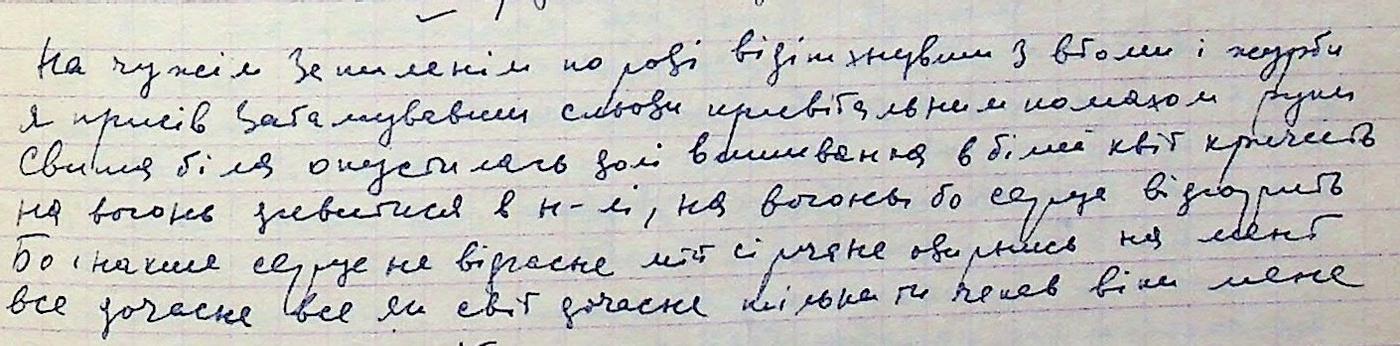 На чужім запиленім порозі відітхнувши з втоми і журби
я присів затамувавши сльози привітальним помахом руки
Свита біла опустилась долі вишивання в білий квіт кричить
на вогонь дивитися в н-лі, на вогонь бо серце відгорить
Бо інакше серце не відгасне мій сірчане озирнись на мент
все дочасне все як світ дочасне кілька ти чекав віки мене